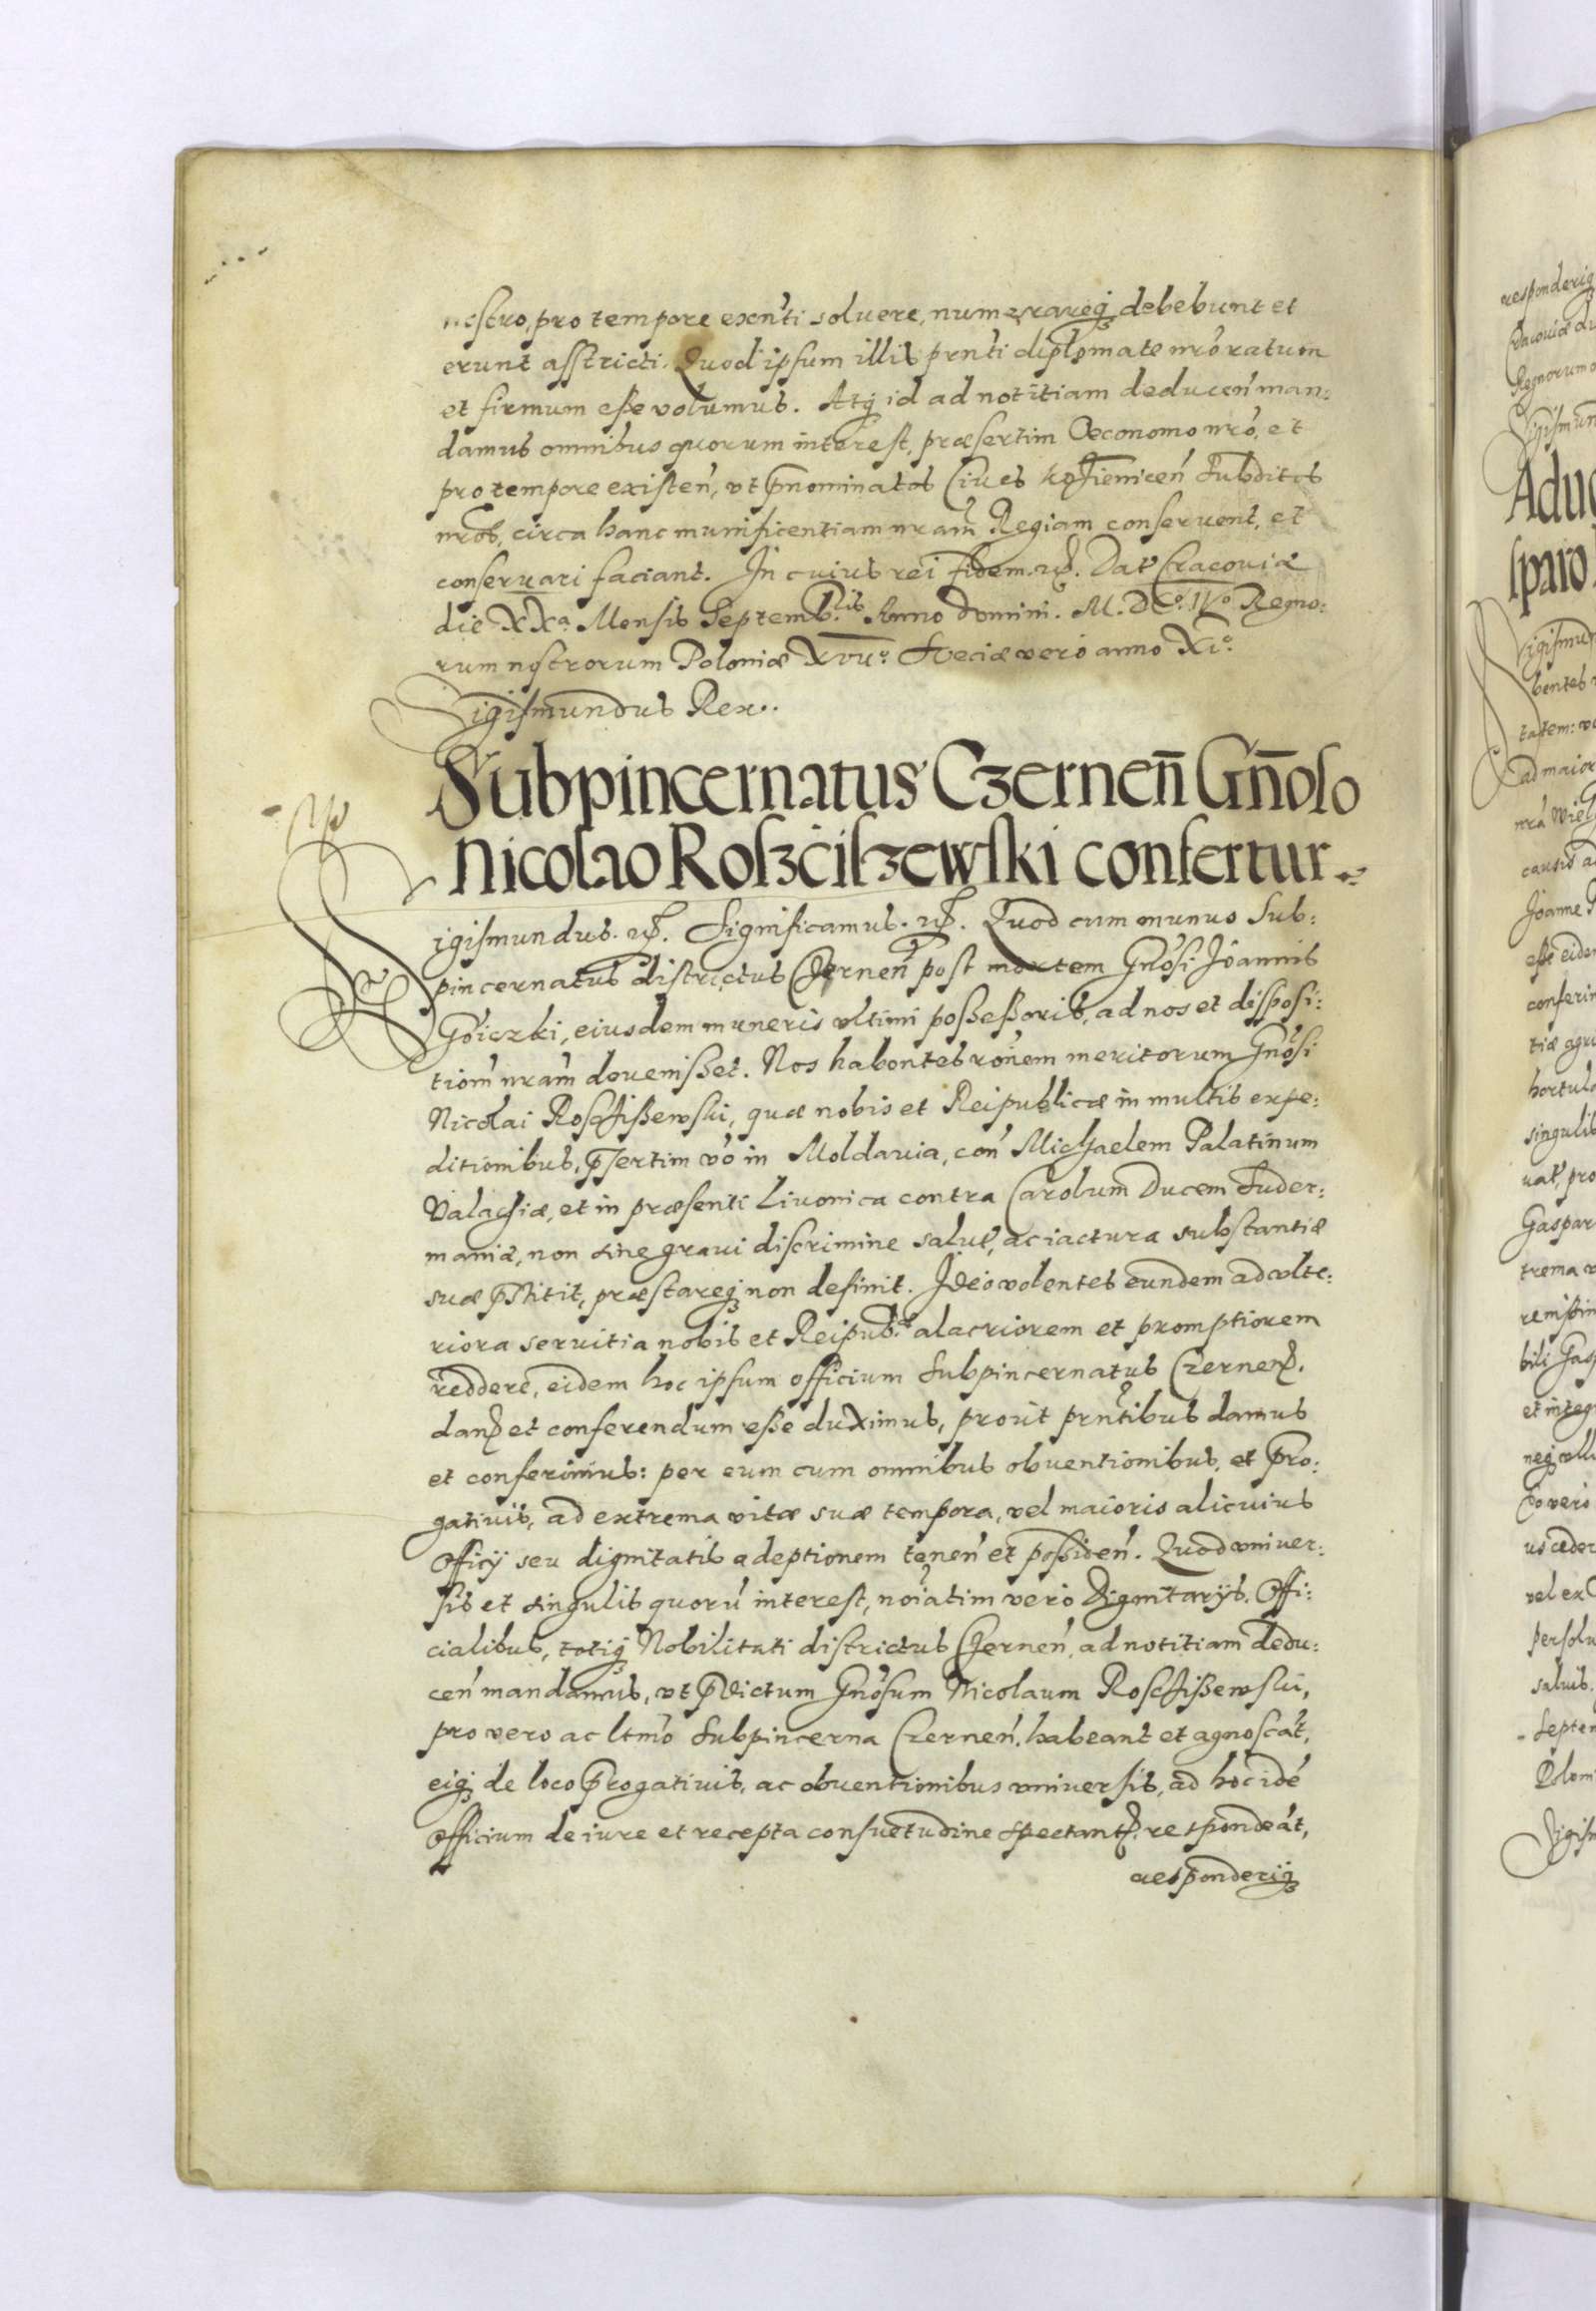 nostro, pro tempore exen̄ti soluere, numerareq; debebunt et
erunt asstricti. Quod ipsum illis prn̄ti diplomate nr̄o ratum
et firmum esse volumus. Atq; id ad notitiam deducen̄ man:
damus omnibus quorum interest, præsertim Oeconomo nr̄o, et
pro tempore existen̄, vt p̄nominatos Ciues Subditos
nr̄os, circa hanc munificentiam nr̄am Regiam conseruent, et
conseruari faciant. In cuius rei fidem. Dat̄ Cracouiæ
die XXa. Mensis Septemb.ris Anno domini. M.DCo.IVo. Regno:
rum nostrorum Poloniæ XVIIo. Sveciæ vero anno XIo.
Sigismundus Rex..
Subpincernatus Czernen̄ Gn̄oso
Nicolao Roszciszewski confertur.
Sigismundus. Significamus. Quod cum munus Sub:
pincernatus districtus Czernen̄ post mortem Gn̄osi Joannis
Goiczki, eiusdem muneris vltimi possessoris, ad nos et disposi:
tiom̄ nram̄ deuenisset. Nos habentes ron̄em meritorum Gn̄osi
Nicolai Roscissewski, quæ nobis et Reipublicæ in multis expe:
ditionibus, p̄sertim vo̅ in Moldauia, con̄ Michaelem Palatinum
Valachiæ, et in præsenti Liuonica contra Carolum Ducem Suder:
maniæ, non sine graui discrimine salut̄, ac iactura substantiæ
suæ p̄stitit, præstareq; non desinit. Ideo volentes eundem ad vlte:
riora seruitia nobis et Reipub.cæ alacriorem et promptiorem
reddere, eidem hoc ipsum officium Subpincernatus Czernen̄.
dand̄ et conferendum esse duximus, prout prn̄tibus damus
et conferimus: per eum cum omnibus obuentionibus, et p̄ro:
gatiuis, ad extrema vitæ suæ tempora, vel maioris alicuius
Officij seu dignitatis adeptionem tenen̄ et possiden̄. Quod vniuer:
sis et singulis quorū interest, noia̅tim vero Dignitarijs, Offi:
cialibus, totiq; Nobilitati districtus Czernen̄, ad notitiam dedu:
cen̄ mandamus, vt p̄dictum Gn̄osum Nicolaum Roscissewski,
pro vero ac ltm̄o Subpincerna Czernen̄. habeant et agnoscāt,
eiq; de loco p̄rogatiuis, ac obuentionibus vniuersis, ad hoc idē
officium de iure et recepta consuetudine spectant̄. respondeāt,
responderiq;